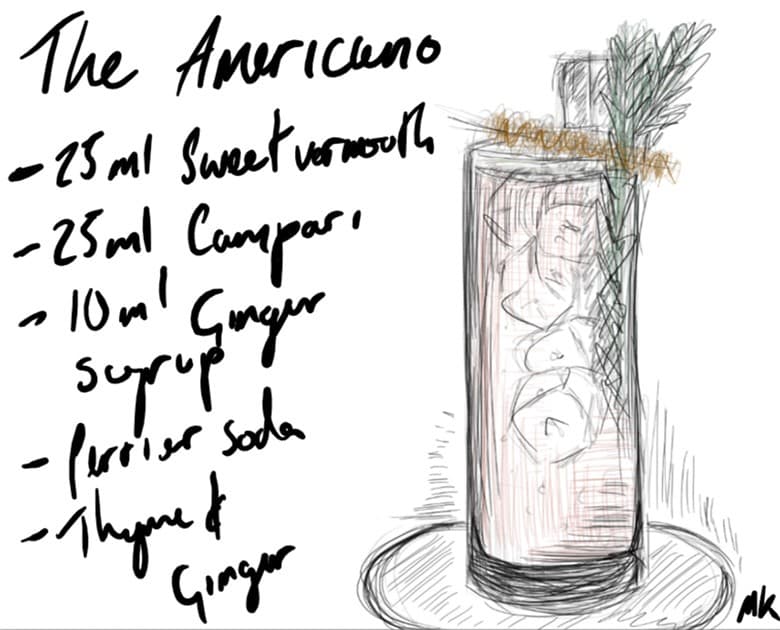 The Americano
- 25ml Sweet vermouth
- 25ml Campari
- 10ml Ginger
syrup
- Perrier soda
- Thyme &
Ginger
MK